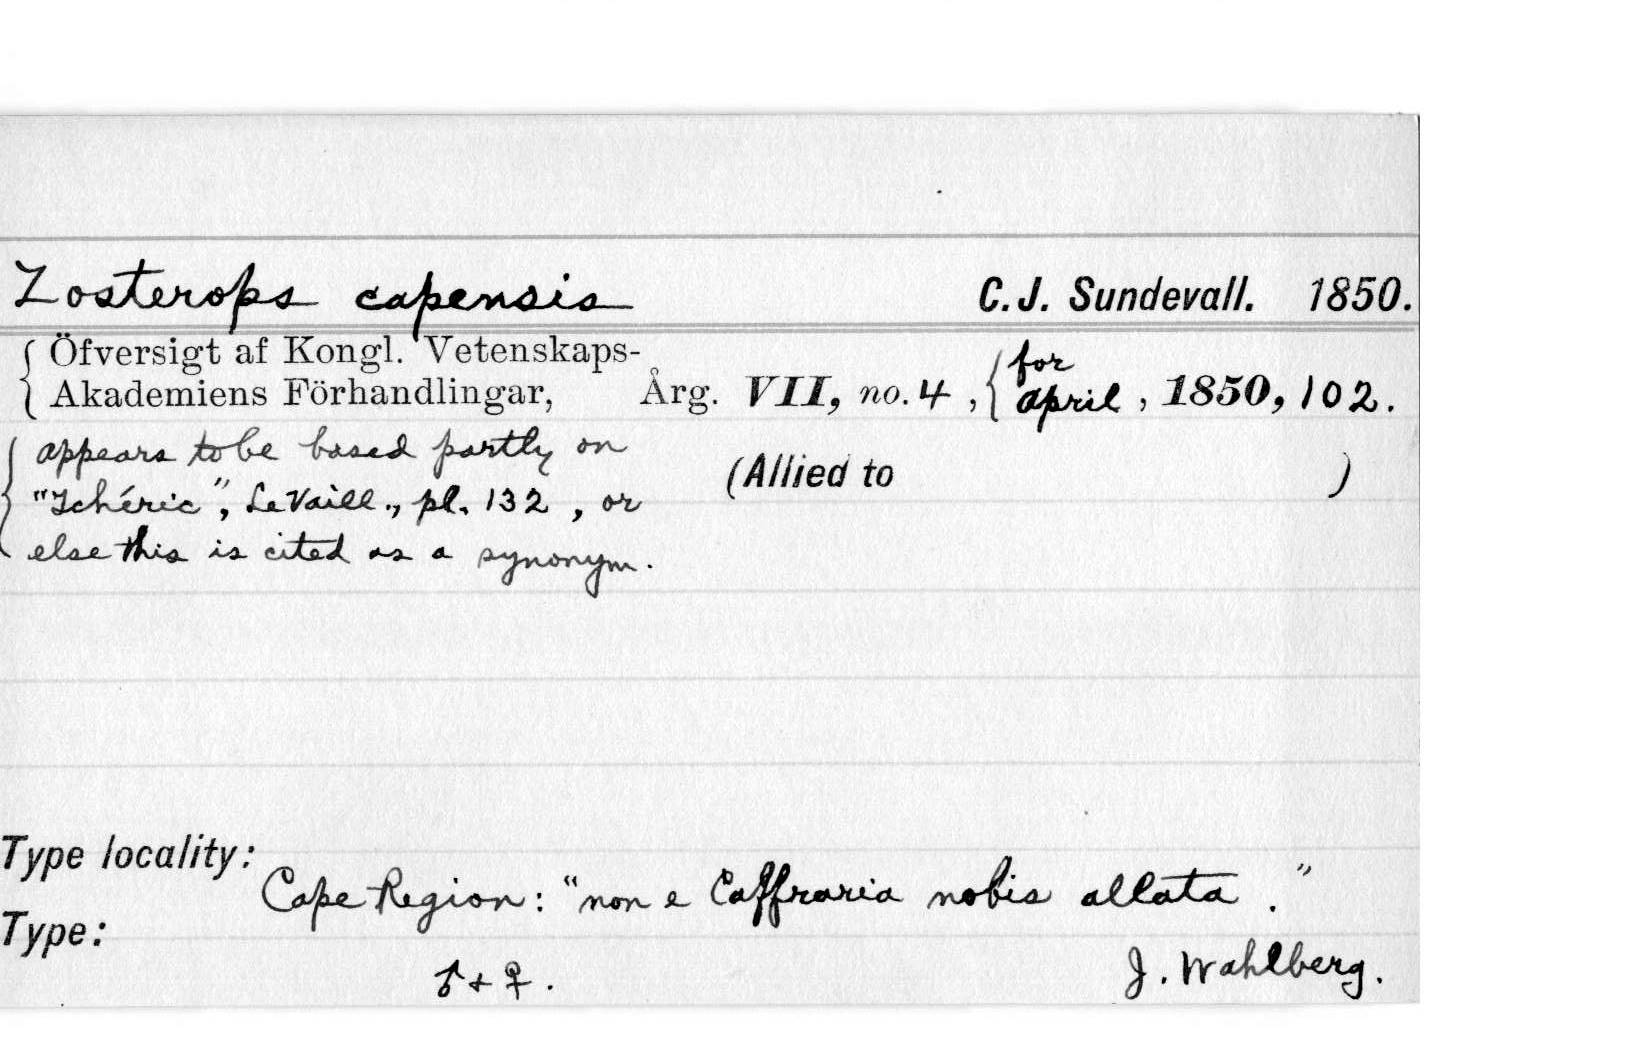 Zosterops capensis C.J. Sundevall. 1850.
Öfversigt af Kongl. Vetenskaps-
Akademiens Förhandlingar, Årg. VII, no. 4, for April, 1850, 102.
appears to be based partly on
"Tchéric", Le Vaill., pl. 132, or (Allied to )
else this is cited as a synonym.
Type locality:
Cape Region: "non e Caffraria nobis allata."
Type:
♂ + ♀. J. Wahlberg.